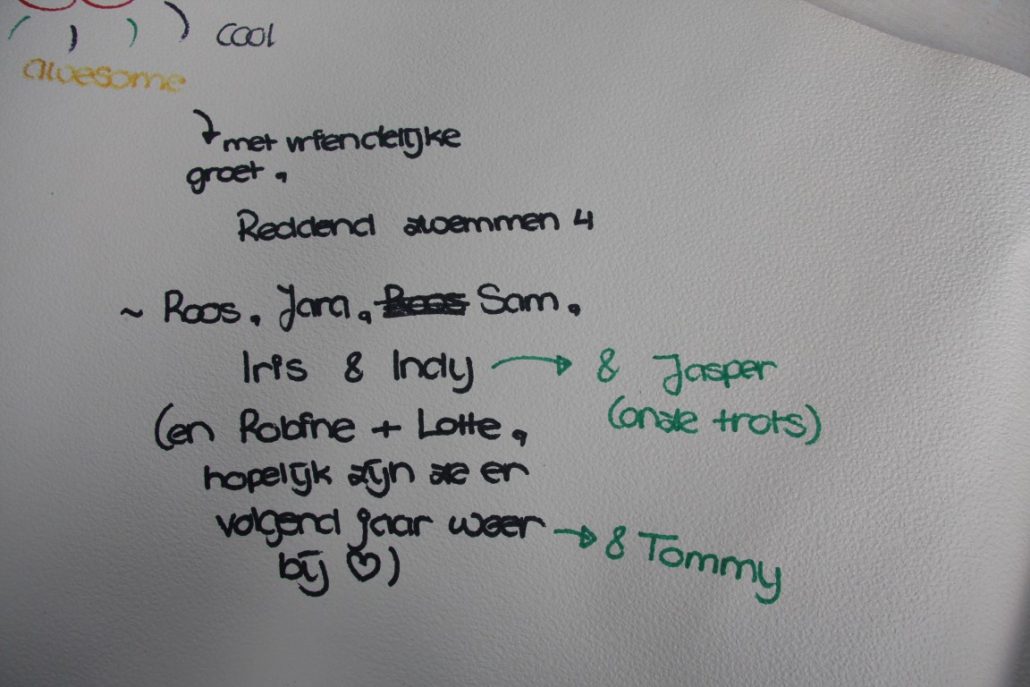 cool
awesome
met vriendelijke
groet,
Reddend zwemmen 4
~ Roos, Jara, Roos Sam,
Iris & Indy → & Jasper
(en Robine + Lotte, (onze trots)
hopelijk zijn ze er
volgend jaar weer → & Tommy
bij ♡)